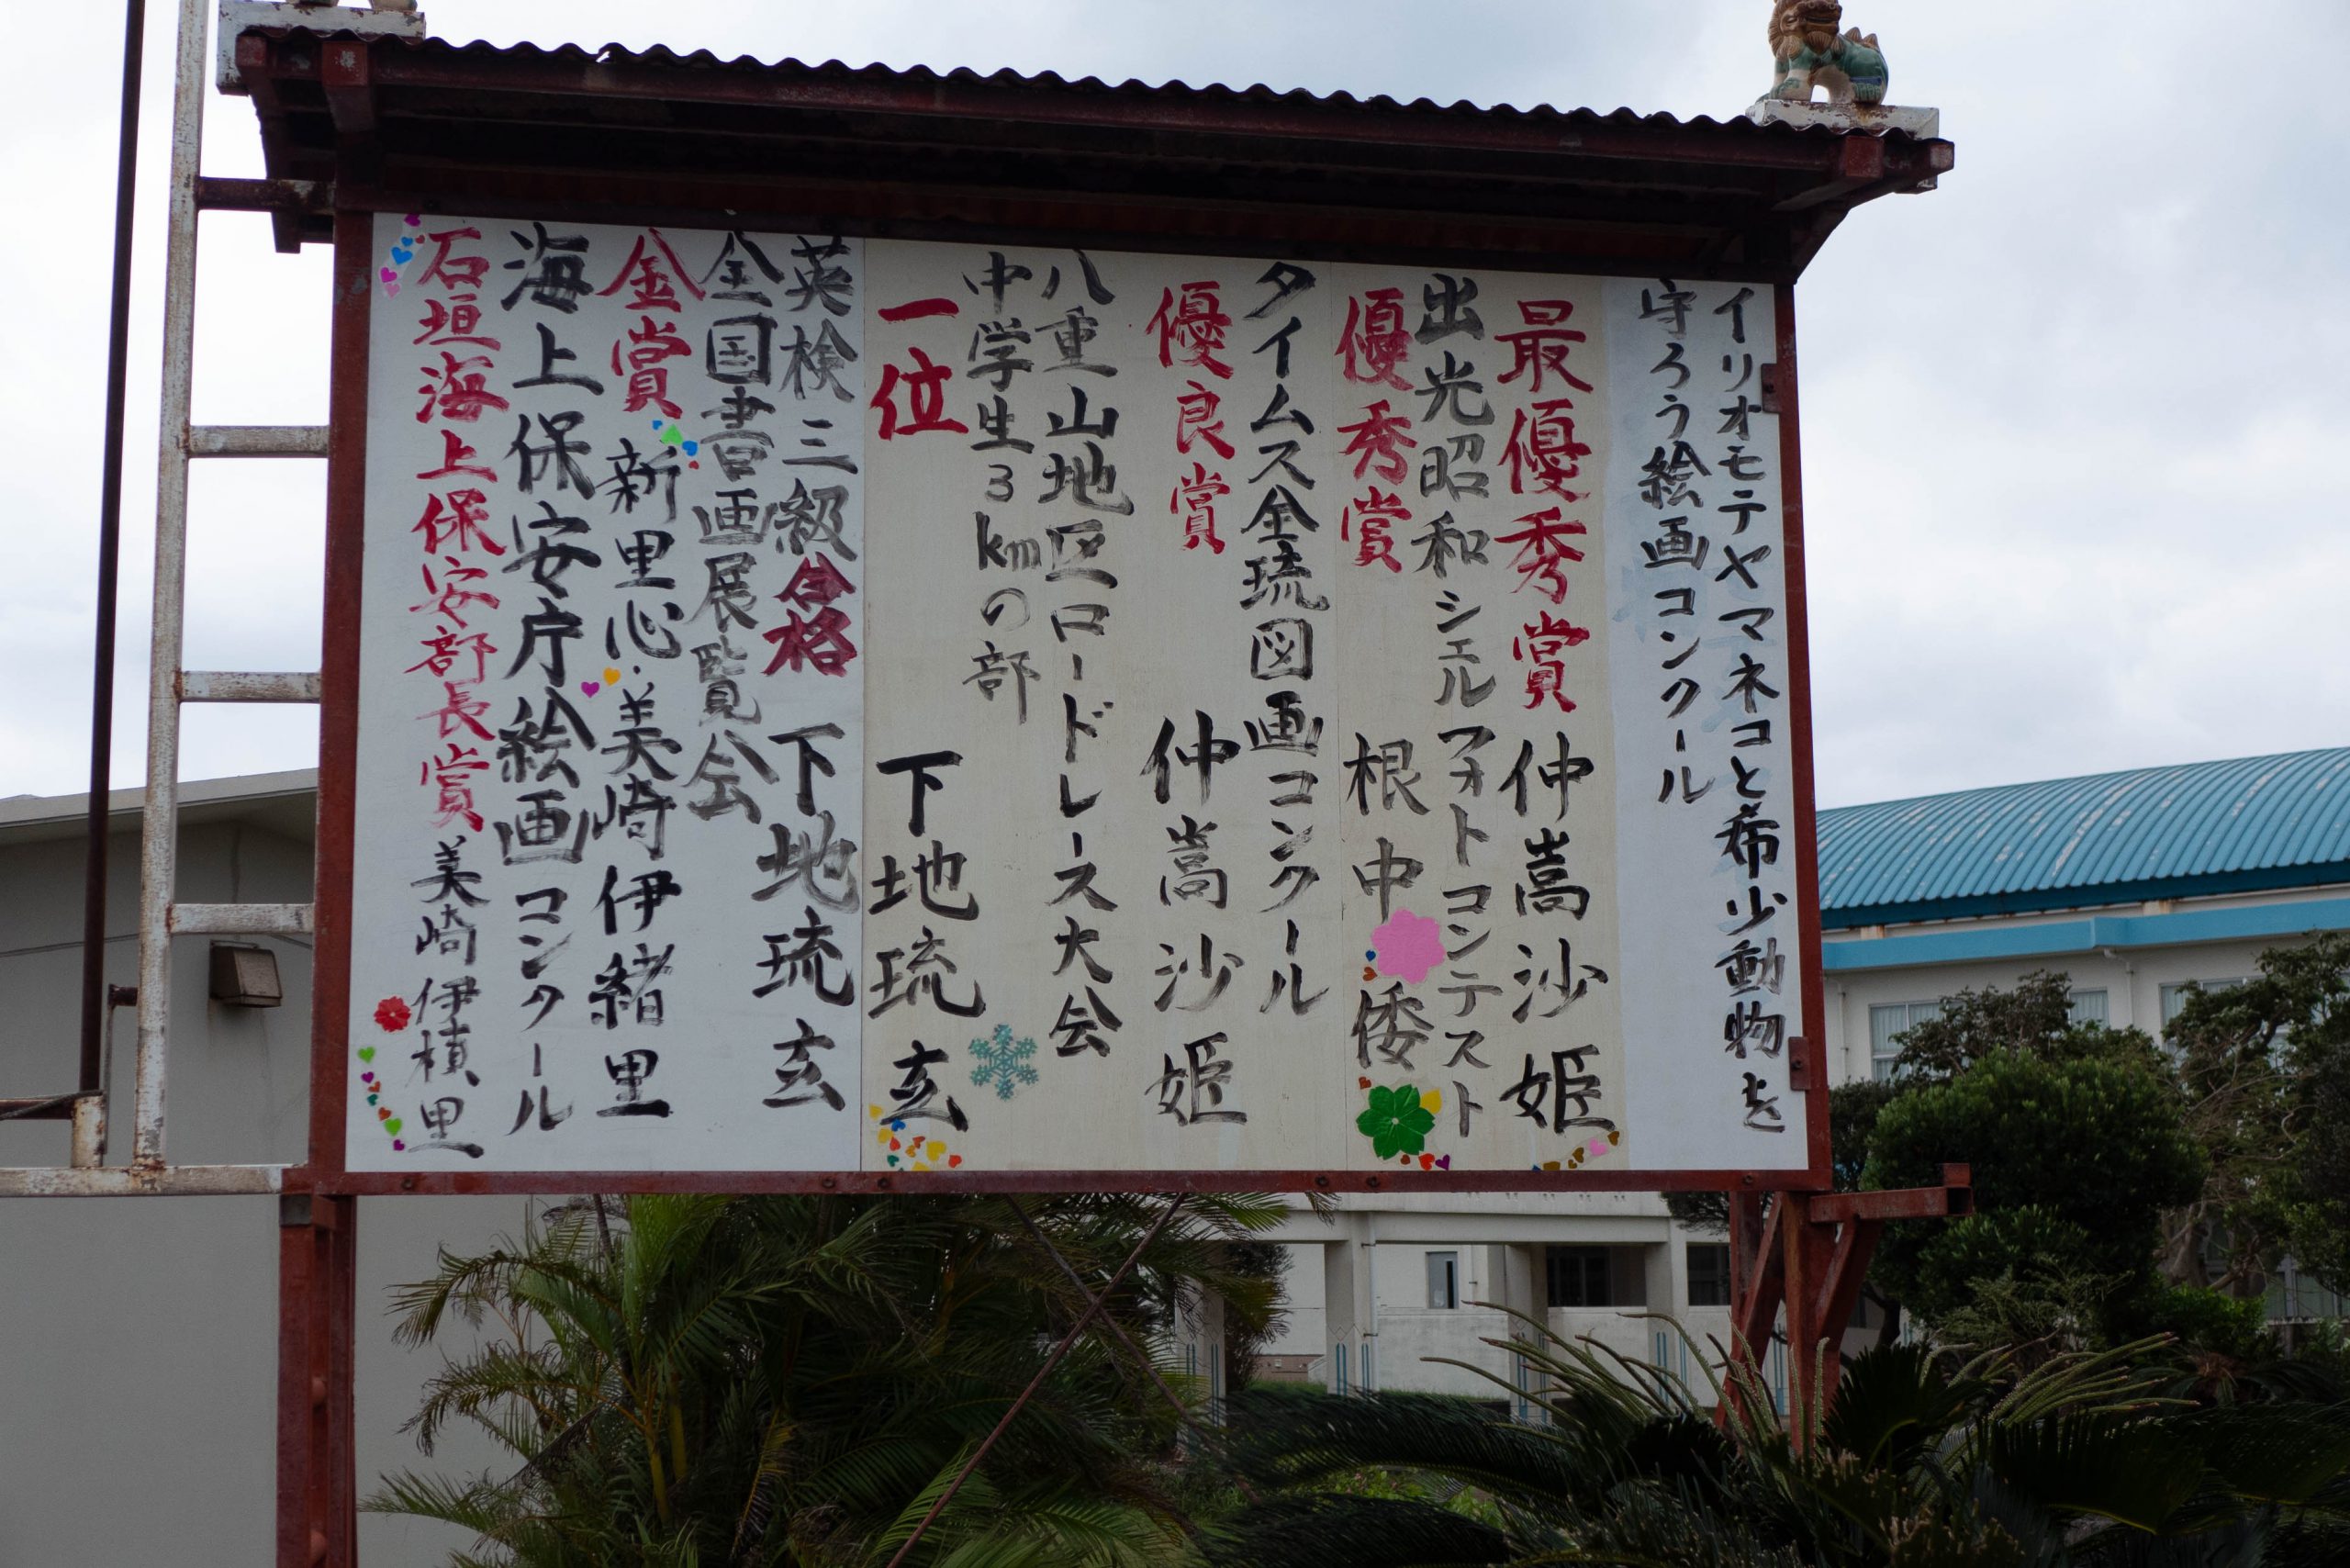 イリオモテヤマネコと希少動物を
守ろう絵画コンクール
最優秀賞 仲嵩沙姫
出光昭和シェルフォトコンテスト
優秀賞 根中 倭
タイムス全琉図画コンクール
優良賞 仲嵩沙姫
八重山地区ロードレース大会
中学生3kmの部
一位 下地琉玄
英検三級合格 下地琉玄
全国書画展覧会
金賞 新里心・美崎伊緒里
海上保安庁絵画コンクール
石垣海上保安部長賞 美崎伊槙里